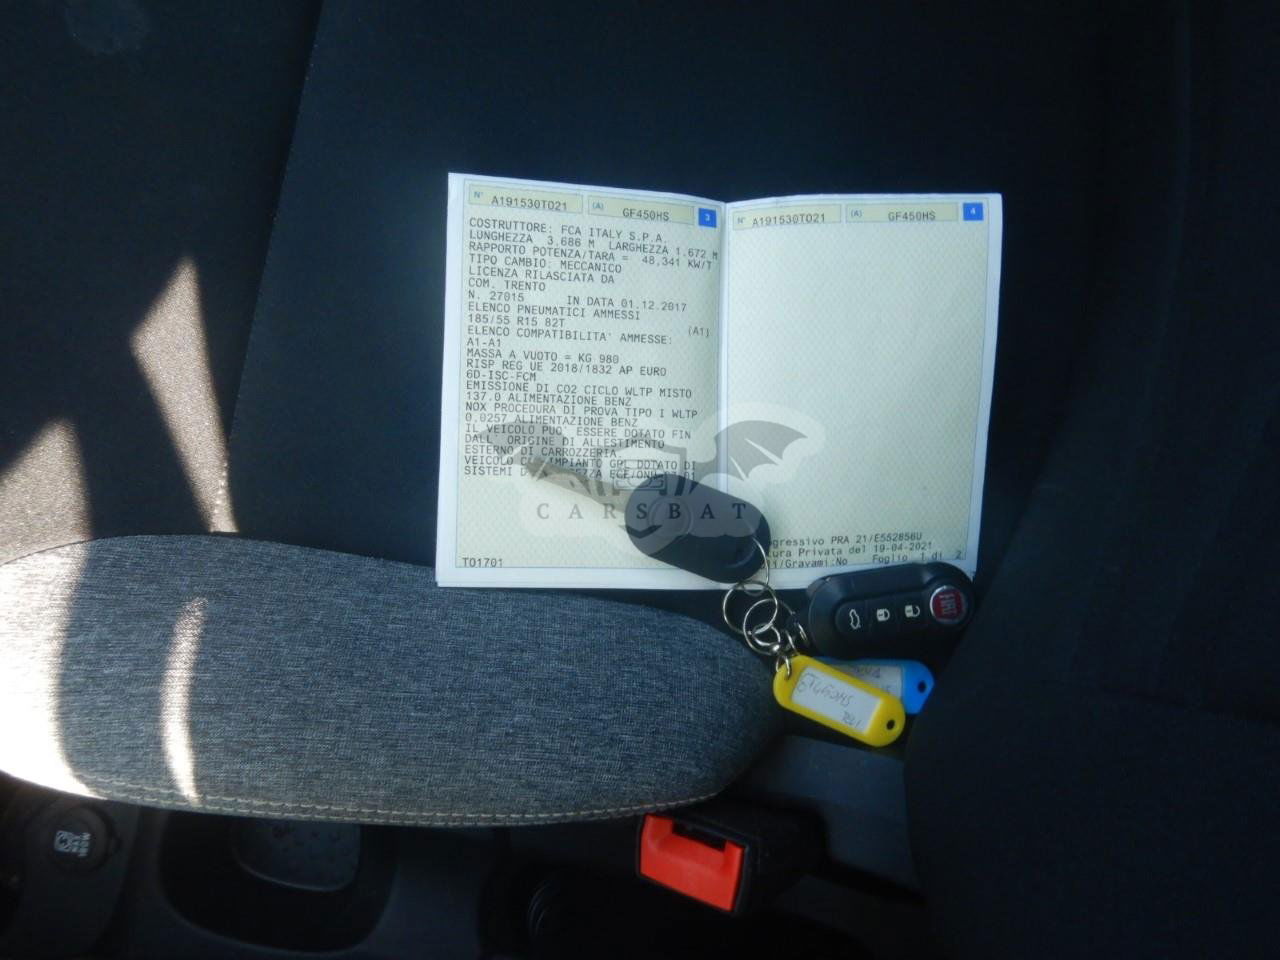 N° A191530TO21 (A) GF450HS 3
COSTRUTTORE: FCA ITALY S.P.A.
LUNGHEZZA 3,686 M LARGHEZZA 1.672 M
RAPPORTO POTENZA/TARA = 48,341 KW/T
TIPO CAMBIO: MECCANICO
LICENZA RILASCIATA DA
COM. TRENTO
N. 27015 IN DATA 01.12.2017
ELENCO PNEUMATICI AMMESSI
185/55 R15 82T (A1)
ELENCO COMPATIBILITA' AMMESSE:
A1-A1
MASSA A VUOTO = KG 980
RISP REG UE 2018/1832 AP EURO
6D-ISC-FCM
EMISSIONE DI CO2 CICLO WLTP MISTO
137.0 ALIMENTAZIONE BENZ
NOX PROCEDURA DI PROVA TIPO I WLTP
0,0257 ALIMENTAZIONE BENZ
IL VEICOLO PUO' ESSERE DOTATO FIN
DALL' ORIGINE DI ALLESTIMENTO
ESTERNO DI CARROZZERIA.
VEICOLO IMPIANTO GPL DOTATO DI
SISTEMI ECE/ONU DI
TO1701
N° A191530TO21 (A) GF450HS 4
gressivo PRA 21/E552856U
ura Privata del 19-04-2021
i/Gravami:No Foglio 1 di 2
CARSBAT
FIAT